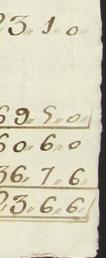 23„ 1„ 0„
69„ 5„ 0„
60„ 6„ 0
36„ 7„ 6„
23„ 6„ 6„